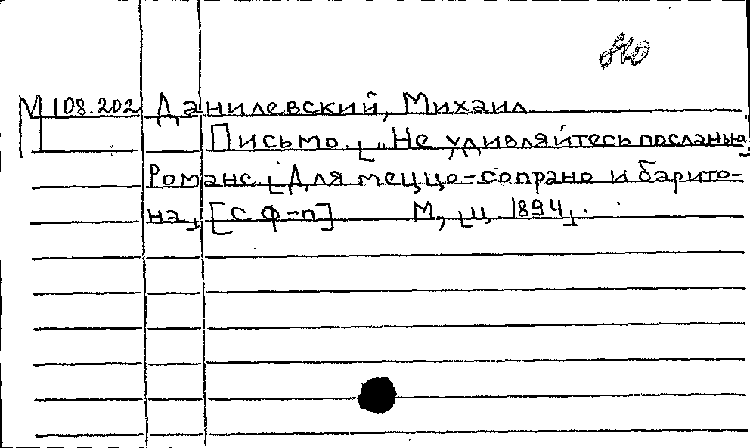 М 108.202 Данилевский, Михаил
Письмо. ⌊„Не удивляйтесь посланью⌋
Романс. ⌊Для меццо-сопрано и барито-
на⌋ [с ф-п] М, ⌊ц. 1894⌋.